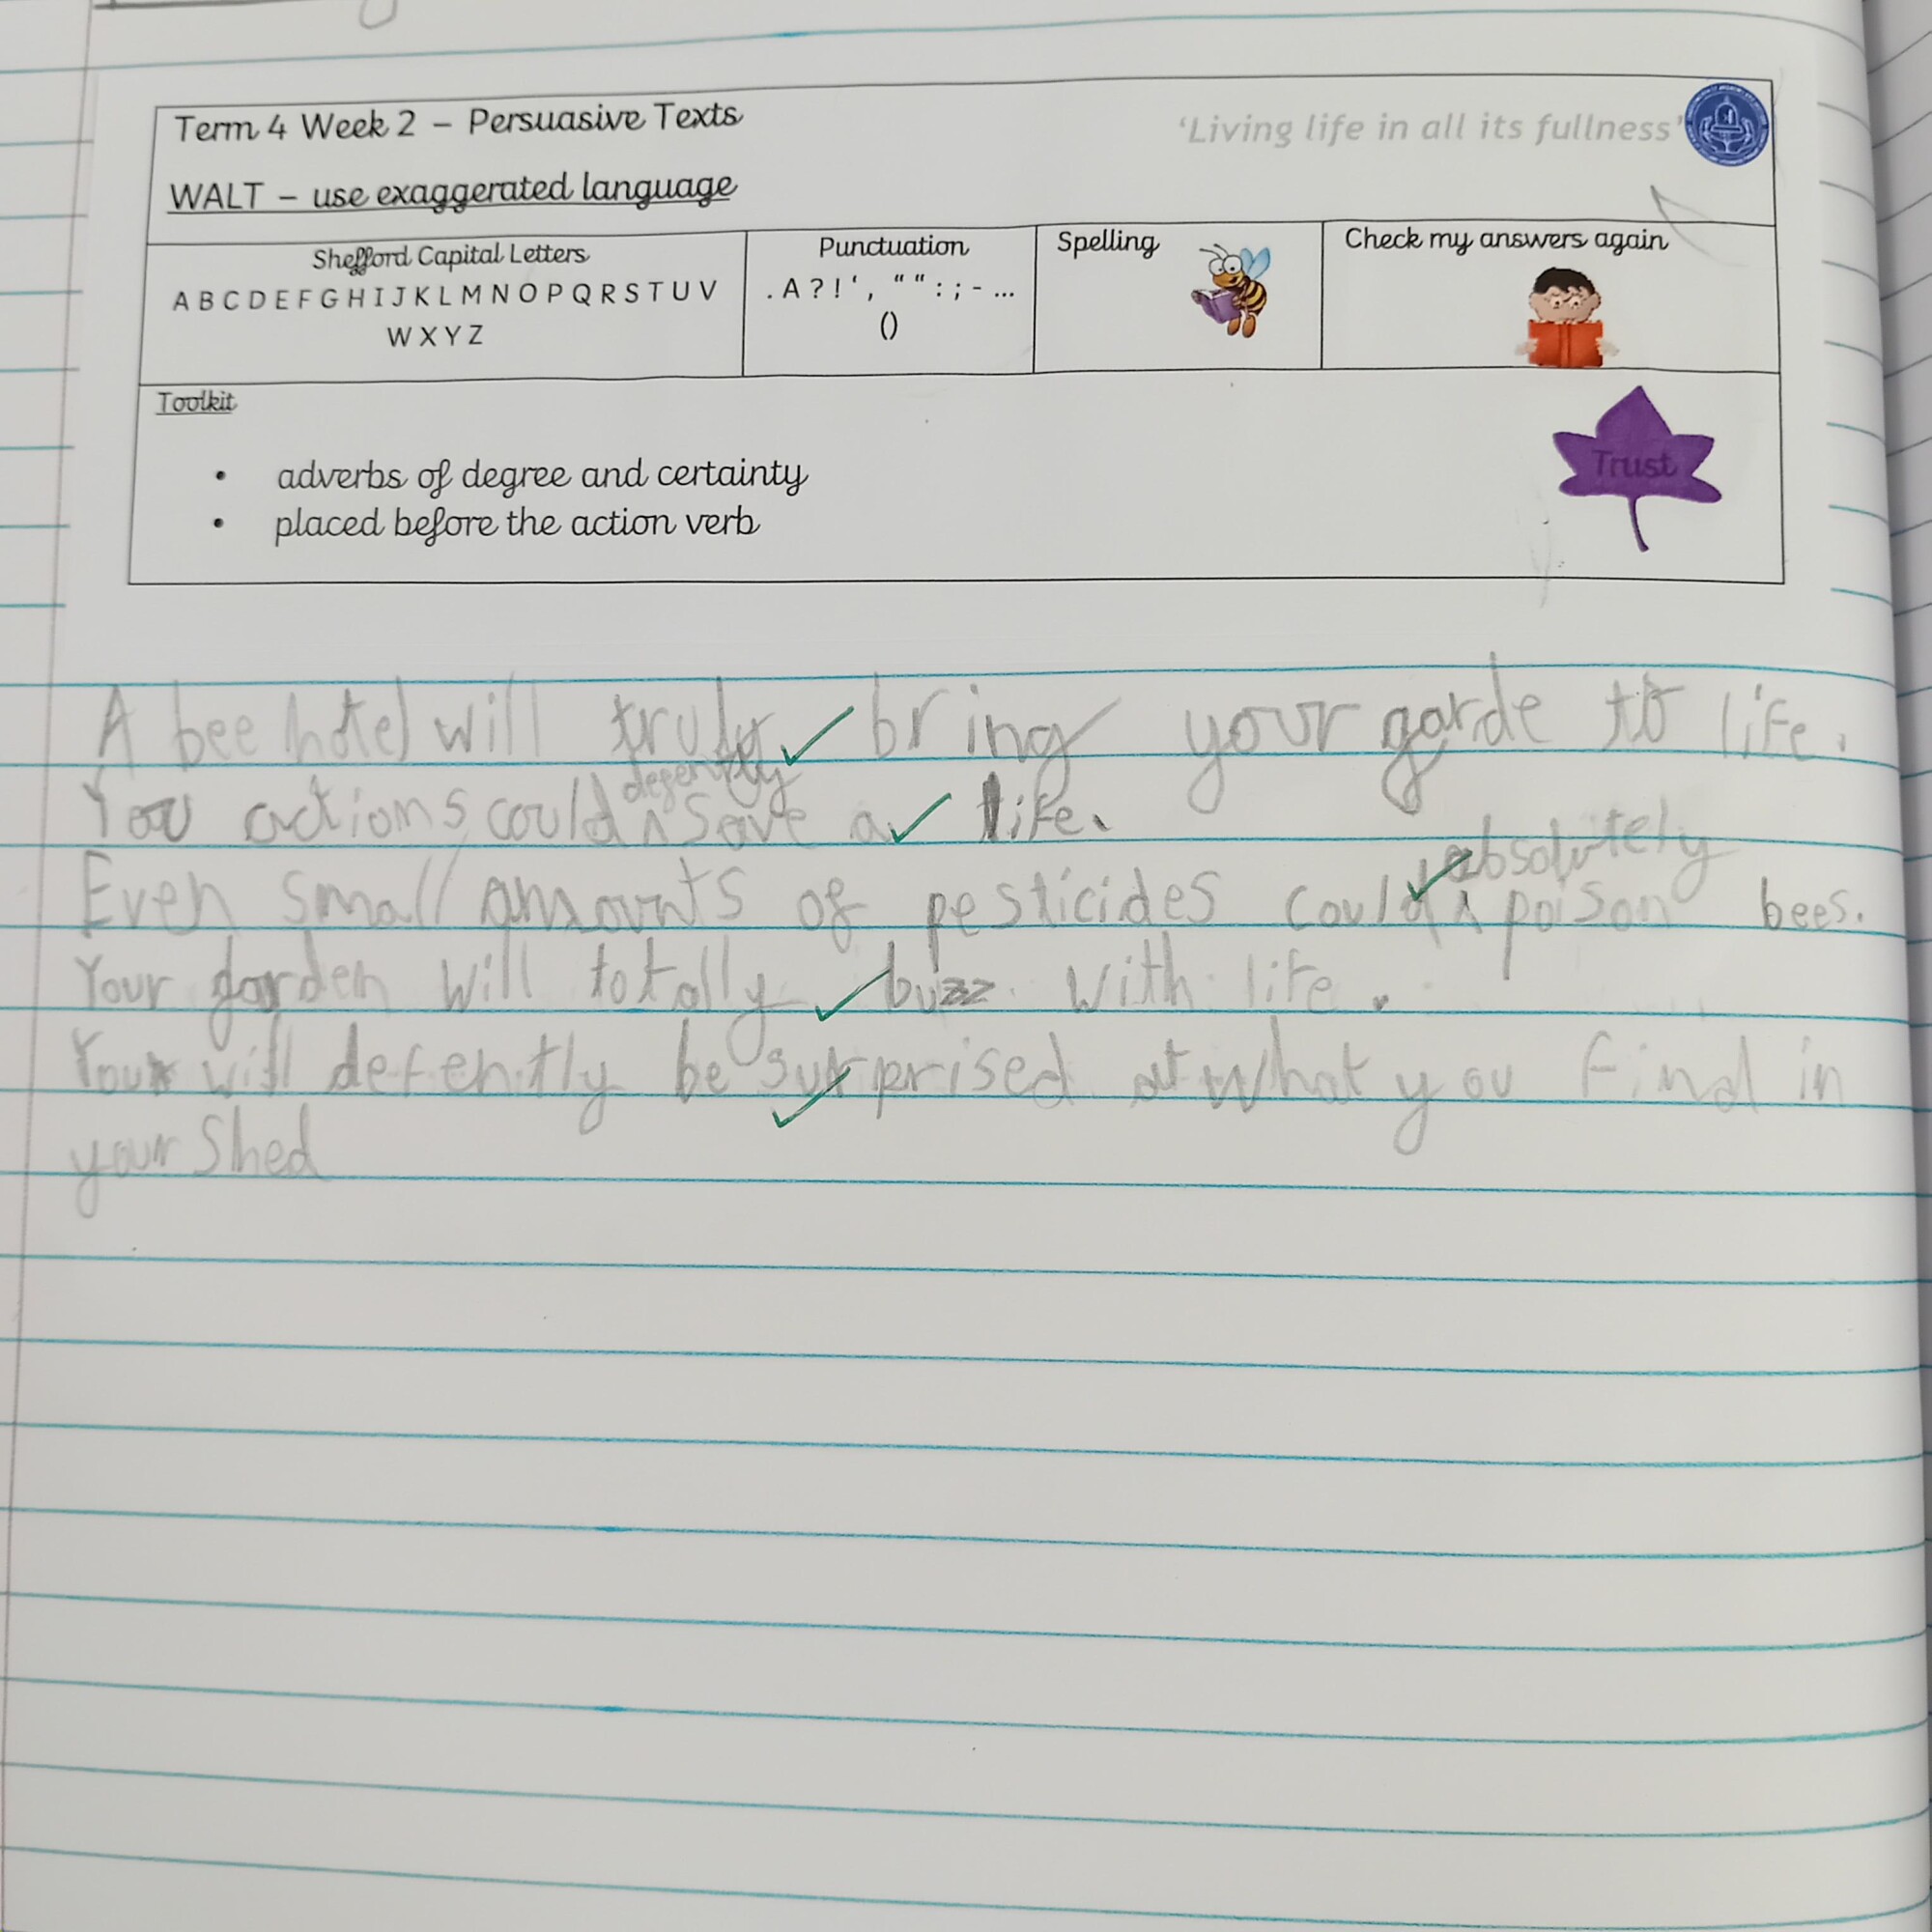 Term 4 Week 2 – Persuasive Texts
'Living life in all its fullness'
WALT – use exaggerated language
Shefford Capital Letters
A B C D E F G H I J K L M N O P Q R S T U V
W X Y Z
Punctuation
. A ? ! ' , " " : ; - ...
()
Spelling
Check my answers again
Toolkit
• adverbs of degree and certainty
• placed before the action verb
Trust
A bee hotel will truly bring your garde to life.
defently
You actions could ^ save a life.
absolutely
Even small amounts of pesticides could ^ poison bees.
Your garden will totally buzz with life.
You will defently be surprised at what you find in
your Shed